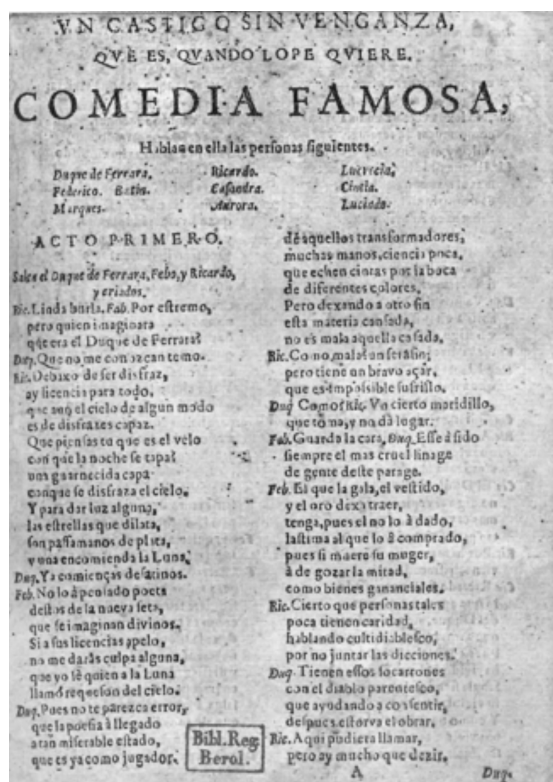 VN CASTIGO SIN VENGANZA,
QVE ES, QVANDO LOPE QVIERE.
COMEDIA FAMOSA,
Hablan en ella las personas siguientes.
Duque de Ferrara. Ricardo. Lucrecia.
Federico. Batin. Casandra. Cintia.
Marques. Aurora. Lucindo.
ACTO PRIMERO.
Salen el Duque de Ferrara, Febo, y Ricardo,
y criados.
Ric. Linda burla. Fab. Por estremo,
pero quien imaginara
que era el Duque de Ferrara?
Duq. Que no me conozcan temo.
Ric. Debaxo de ser disfraz,
ay licencia para todo,
que aun el cielo de algun modo
es de disfrates capaz.
Que piensas tu que es el velo
con que la noche se tapa?
una guarnecida capa
con que se disfraza el cielo.
Y para dar luz alguna,
las estrellas que dilata,
son passamanos de plata,
y una encomienda la Luna.
Duq. Ya comienças desatinos.
Feb. No lo à pensado poeta
destos de la nueva seta,
que se imaginan divinos.
Si a sus licencias apelo,
no me daràs culpa alguna,
que yo sè quien a la Luna
llamò requeson del cielo.
Duq. Pues no te parezca error,
que la poesia à llegado
a tan miserable estado,
que es ya como jugador,
Bibl. Reg.
Berol.
de aquellos transformadores,
muchas manos, ciencia poca,
que echen cintas por la boca
de diferentes colores.
Pero dexando a otro fin
esta materia cansada,
no es mala aquella casada.
Ric. Como mala? un serafin;
pero tiene un bravo açar,
que es impossible sufrillo.
Duq. Como? Ric. Vn cierto maridillo,
que toma, y no dà lugar.
Fab. Guarda la cara, Duq. Esse à sido
siempre el mas cruel linage
de gente deste parage.
Feb. El que la gala, el vestido,
y el oro dexa traer,
tenga, pues el no lo à dado,
lastima al que lo à comprado,
pues si muere su muger,
à de gozar la mitad,
como bienes gananciales.
Ric. Cierto que personas tales
poca tienen caridad,
hablando cultidiablesco,
por no juntar las dicciones.
Duq. Tienen essos socarrones
con el diablo parentesco,
que ayudando a consentir,
despues estorva el obrar.
Ric. Aqui pudiera llamar,
pero ay mucho que dezir.
A Duq.